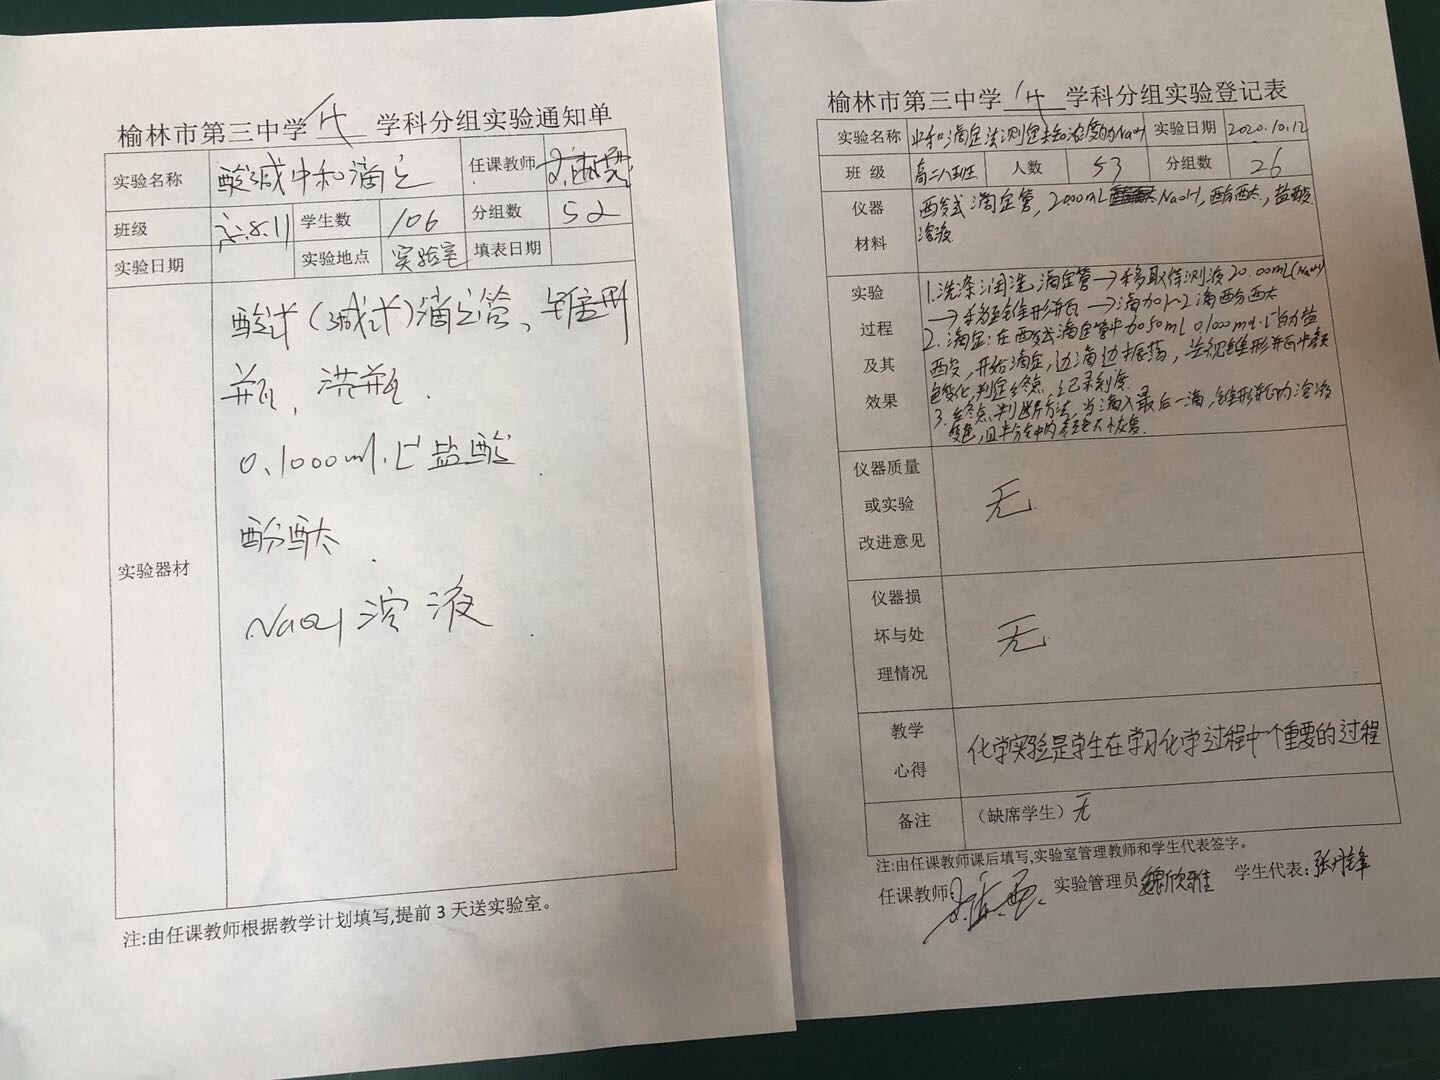 榆林市第三中学 化 学科分组实验通知单
实验名称 酸碱中和滴定 任课教师
班级 学生数 106 分组数 52
实验日期 实验地点 实验室 填表日期
实验器材
酸式(碱式)滴定管、锥形
瓶、洗瓶.
0.1000ml.L⁻¹盐酸.
酚酞.
NaOH溶液.
注:由任课教师根据教学计划填写,提前3天送实验室。
榆林市第三中学 化 学科分组实验登记表
实验名称 中和滴定法测定未知浓度的NaOH 实验日期 2020.10.12
班 级 高二八班 人数 53 分组数 26
仪器
材料
酸式滴定管, 20.00mL NaOH, 酚酞, 盐酸
溶液.
实验
过程
及其
效果
1.洗涤润洗滴定管→移取待测液20.00mL(NaOH)
→移至锥形瓶→滴加1~2滴酚酞
2.滴定:在酸式滴定管中加50mL 0.1000mol·L⁻¹的盐
酸,开始滴定,边滴边振荡,注视锥形瓶中颜
色变化,判定终点,记录刻度.
3.终点判断方法,当滴入最后一滴,锥形瓶内溶液
变色,且半分钟内不恢复.
仪器质量
或实验
改进意见
无
仪器损
坏与处
理情况
无
教学
心得
化学实验是学生在学习化学过程中一个重要的过程
备注 (缺席学生) 无
注:由任课教师课后填写,实验室管理教师和学生代表签字。
任课教师: 实验管理员 魏欣雅 学生代表: